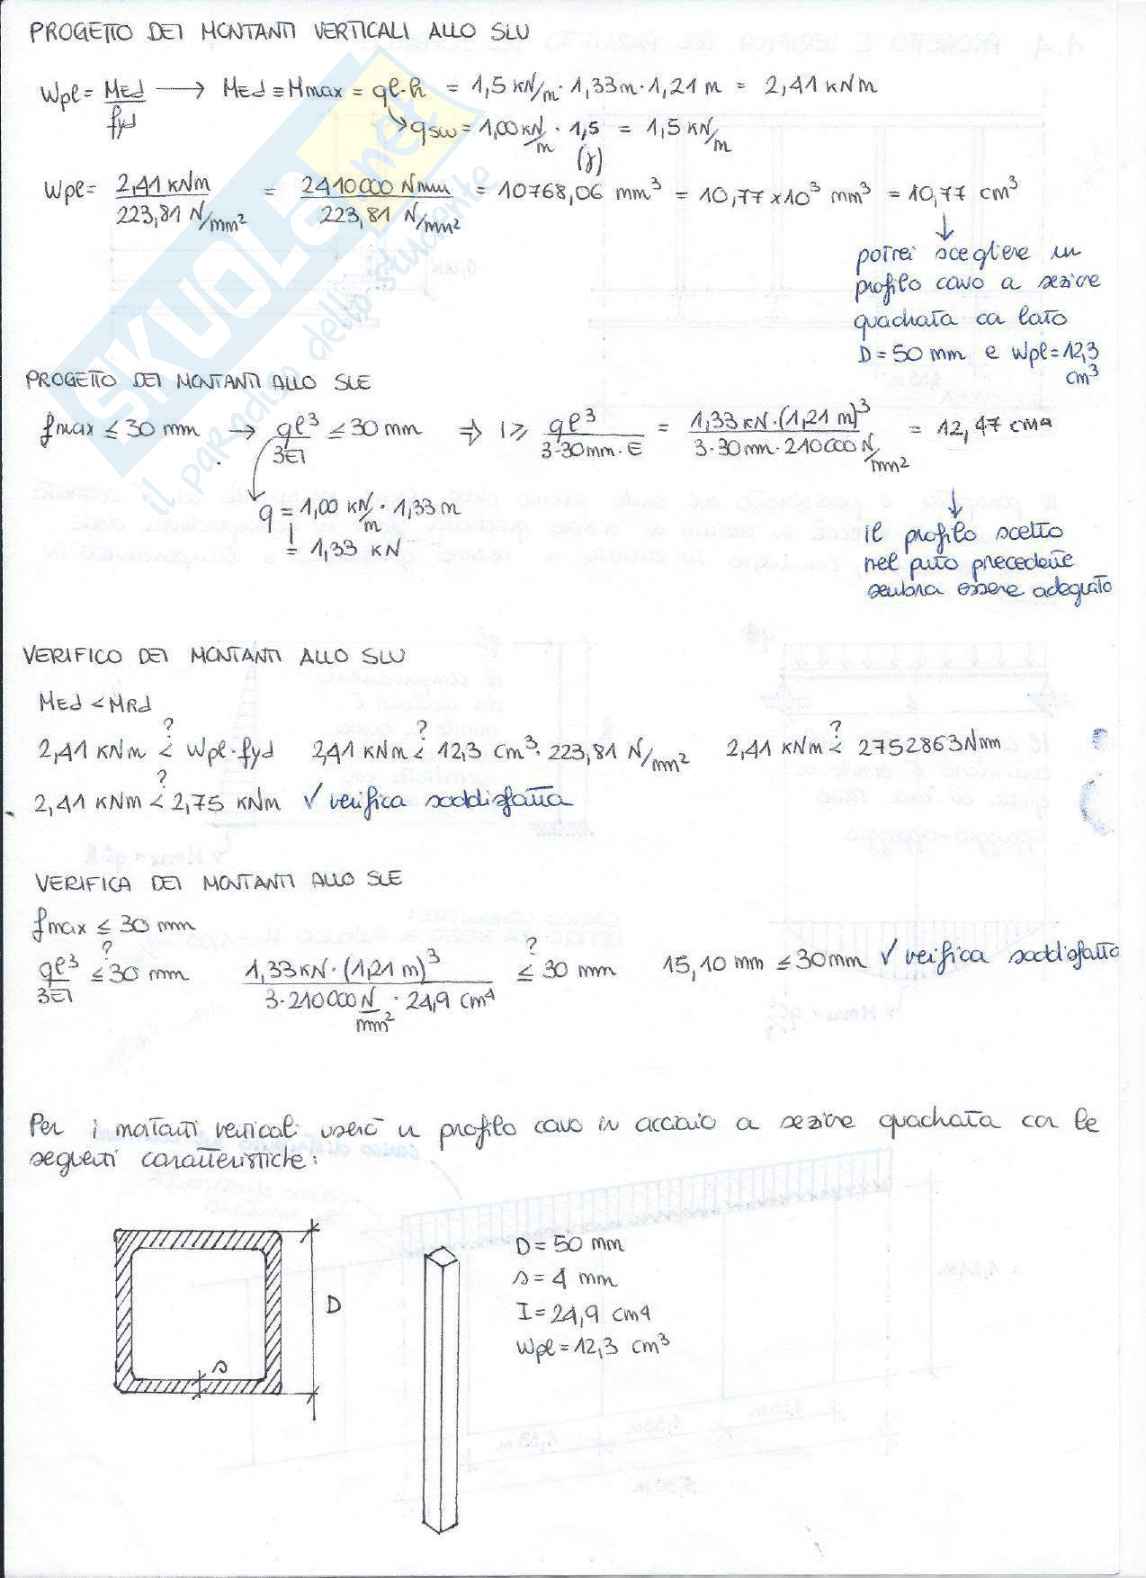 PROGETTO DEI MONTANTI VERTICALI ALLO SLU
Wpl = MEd/fyd → MEd ≡ Mmax = ql·h = 1,5 kN/m · 1,33 m · 1,21 m = 2,41 kNm
qsw = 1,00 kN/m · 1,5 = 1,5 kN/m
(γ)
Wpl = 2,41 kNm / 223,81 N/mm² = 2410000 Nmm / 223,81 N/mm² = 10768,06 mm³ = 10,77 x10³ mm³ = 10,77 cm³
potrei scegliere un
profilo cavo a sezione
quadrata con lato
D = 50 mm e Wpl = 12,3
cm³
PROGETTO DEI MONTANTI ALLO SLE
fmax ≤ 30 mm → ql³/3EI ≤ 30 mm ⇒ I ≥ ql³ / 3·30mm·E = 1,33 kN·(1,21 m)³ / 3·30mm·210000 N/mm² = 12,47 cm4
q = 1,00 kN/m · 1,33 m
= 1,33 kN
Il profilo scelto
nel punto precedente
sembra essere adeguato
VERIFICO DEI MONTANTI ALLO SLU
MEd < MRd
2,41 kNm <? Wpl·fyd 2,41 kNm <? 12,3 cm³ · 223,81 N/mm² 2,41 kNm <? 2752863 Nmm
2,41 kNm <? 2,75 kNm √ verifica soddisfatta
VERIFICA DEI MONTANTI ALLO SLE
fmax ≤ 30 mm
ql³/3EI ≤? 30 mm 1,33 kN·(1,21 m)³ / 3·210000 N/mm² · 24,9 cm4 ≤? 30 mm 15,10 mm ≤ 30mm √ verifica soddisfatta
Per i montanti verticali userò un profilo cavo in acciaio a sezione quadrata con le
seguenti caratteristiche:
D
s
D = 50 mm
s = 4 mm
I = 24,9 cm4
Wpl = 12,3 cm³
SKUOLA.net
il paradiso dello studente